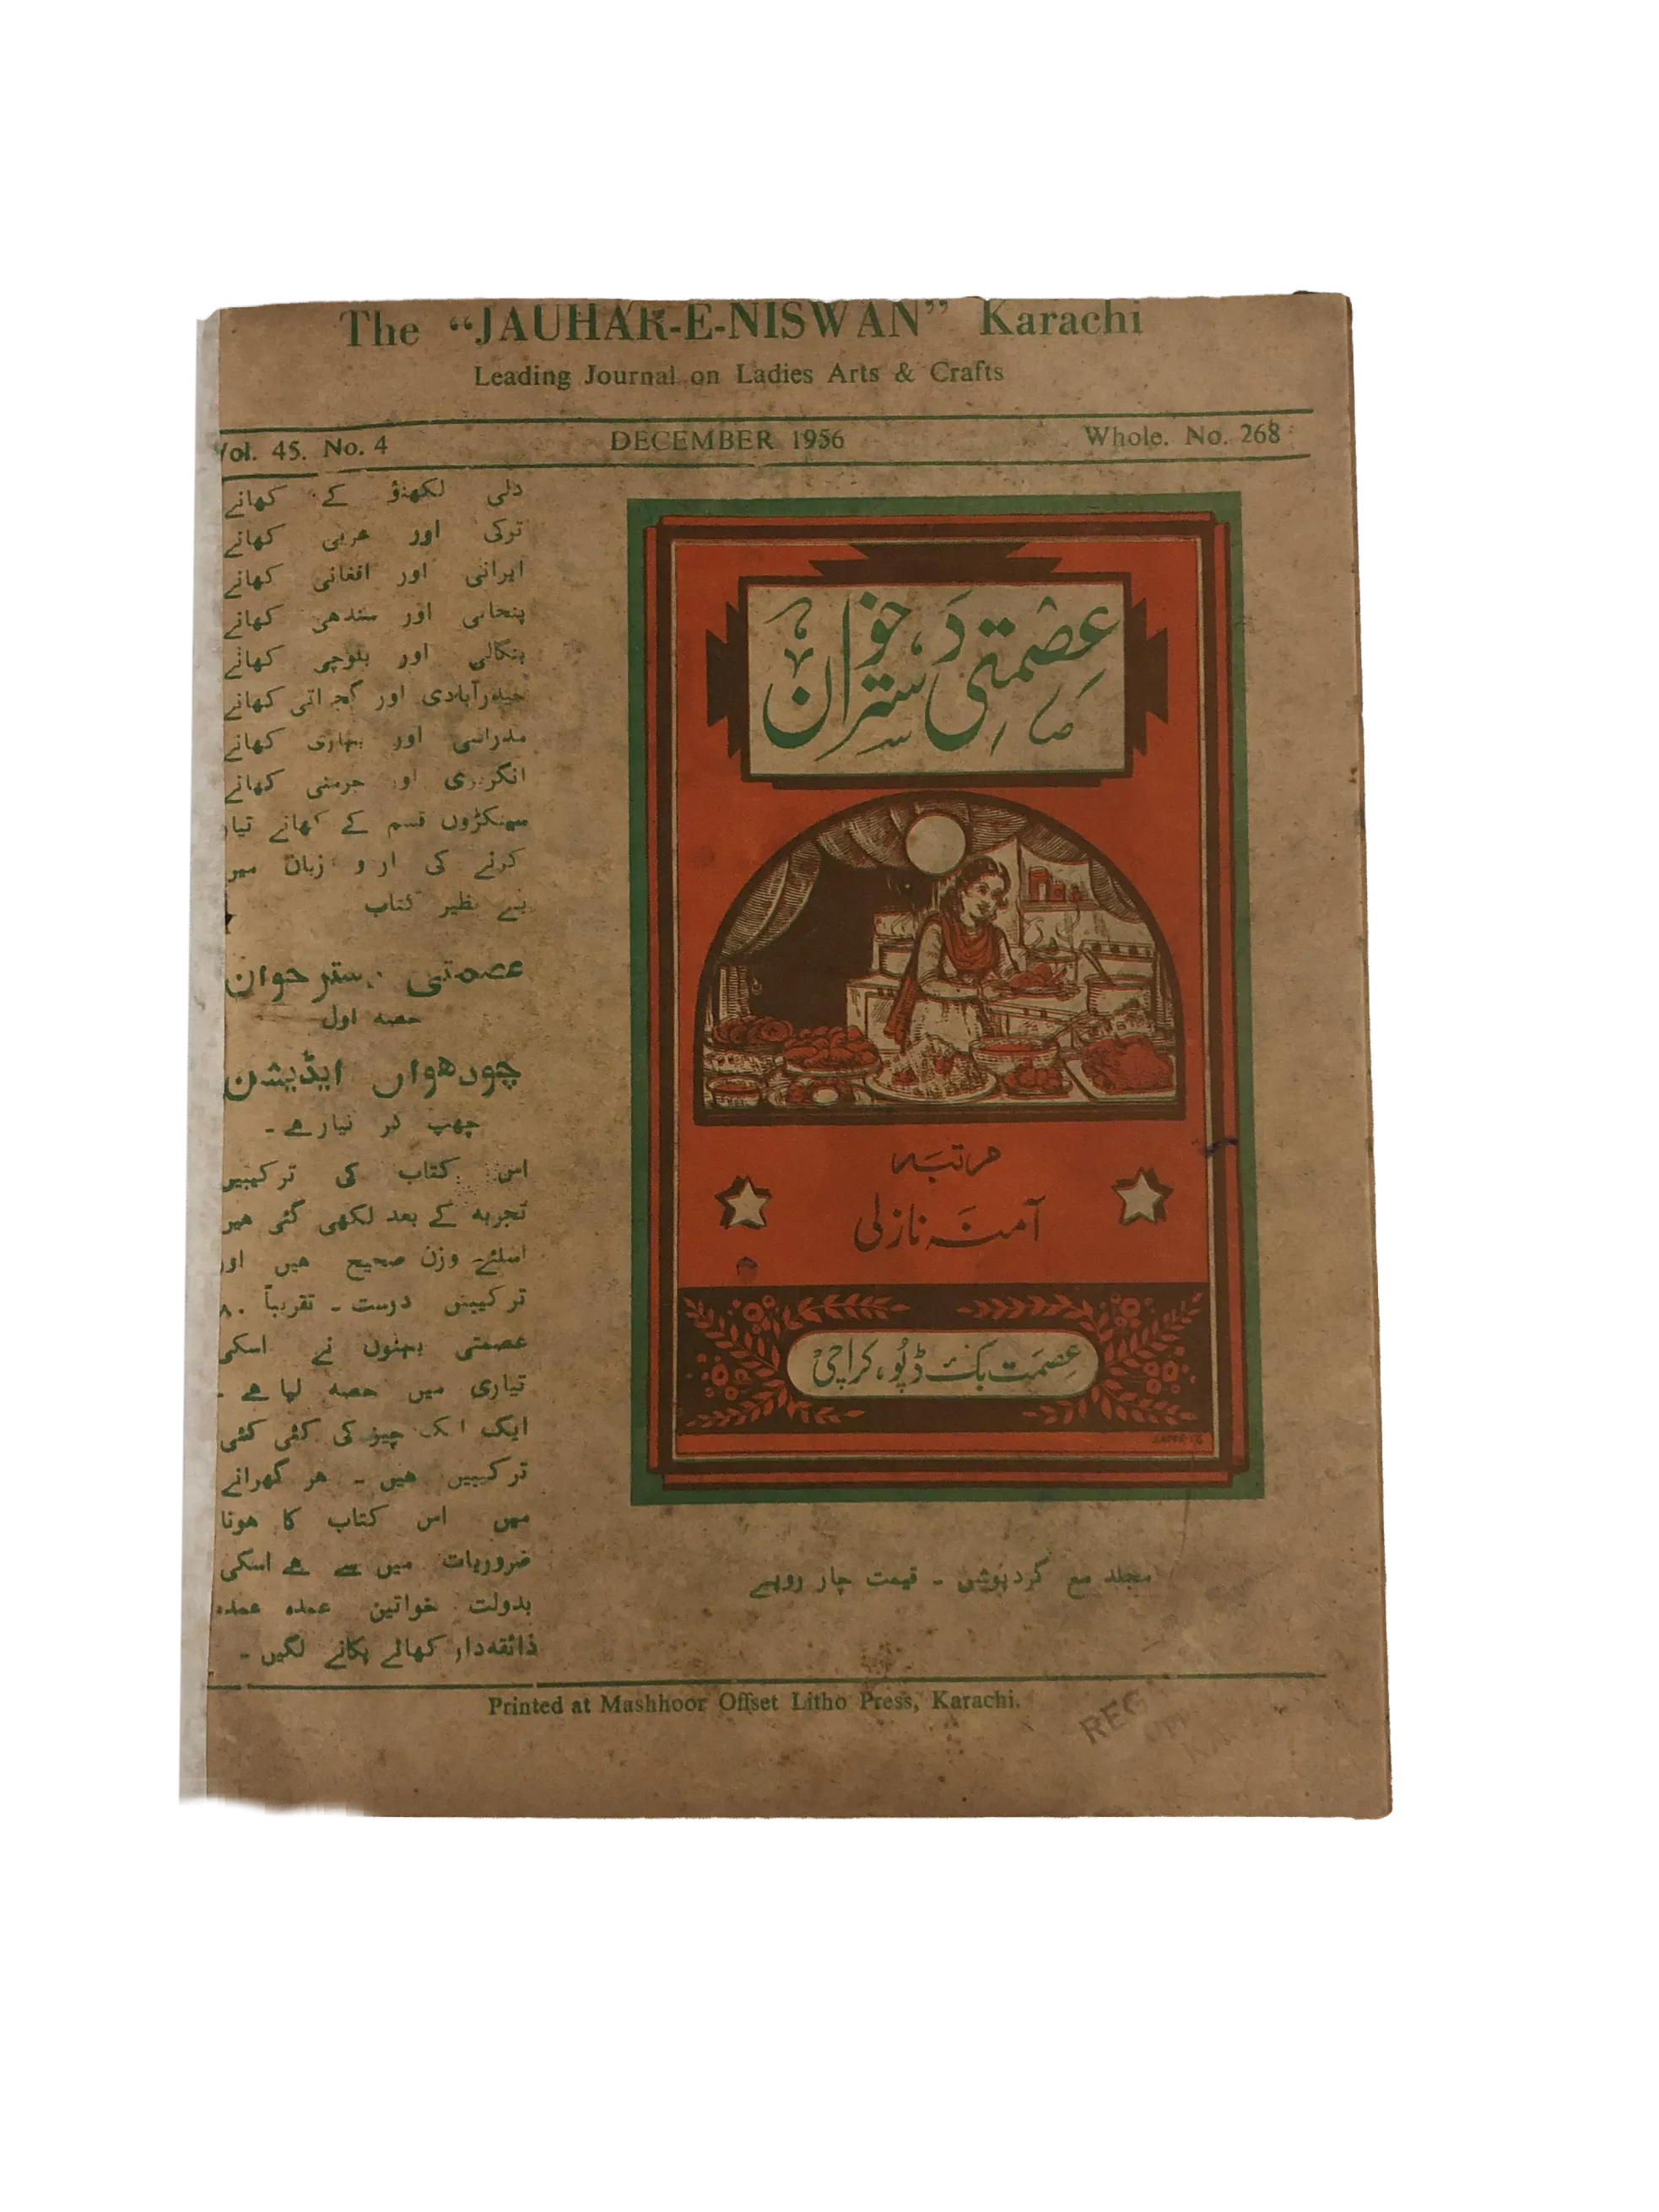 The “JAUHAR-E-NISWAN” Karachi
Leading Journal on Ladies Arts & Crafts
Vol. 45. No. 4 DECEMBER 1956 Whole. No. 268
دلی لکھنؤ کے کھانے
ترکی اور عربی کھانے
ایرانی اور افغانی کھانے
پنجابی اور سندھی کھانے
بنگالی اور بلوچی کھانے
حیدرآبادی اور گجراتی کھانے
مدراسی اور بہاری کھانے
انگریزی اور جرمنی کھانے
سینکڑوں قسم کے کھانے تیار
کرنے کی اردو زبان میں
بے نظیر کتاب
عصمتی دسترخوان
حصہ اول
چودھواں ایڈیشن
چھپ کر تیار ہے ۔
اس کتاب کی ترکیبیں
تجربہ کے بعد لکھی گئی ہیں
اسلئے وزن صحیح ہیں اور
ترکیبیں درست ۔ تقریباً ۸۰
عصمتی بہنوں نے اسکی
تیاری میں حصہ لیا ہے ۔
ایک ایک چیز کی کئی کئی
ترکیبیں ہیں ۔ ہر گھرانے
میں اس کتاب کا ہونا
ضروریات میں سے ہے اسکی
بدولت خواتین عمدہ عمدہ
ذائقہ دار کھانے پکانے لگیں ۔
عصمتی دسترخوان
مرتبہ
آمنہ نازلی
عصمت بک ڈپو، کراچی
مجلد مع گردپوش ۔ قیمت چار روپیے
Printed at Mashhoor Offset Litho Press, Karachi.
REG